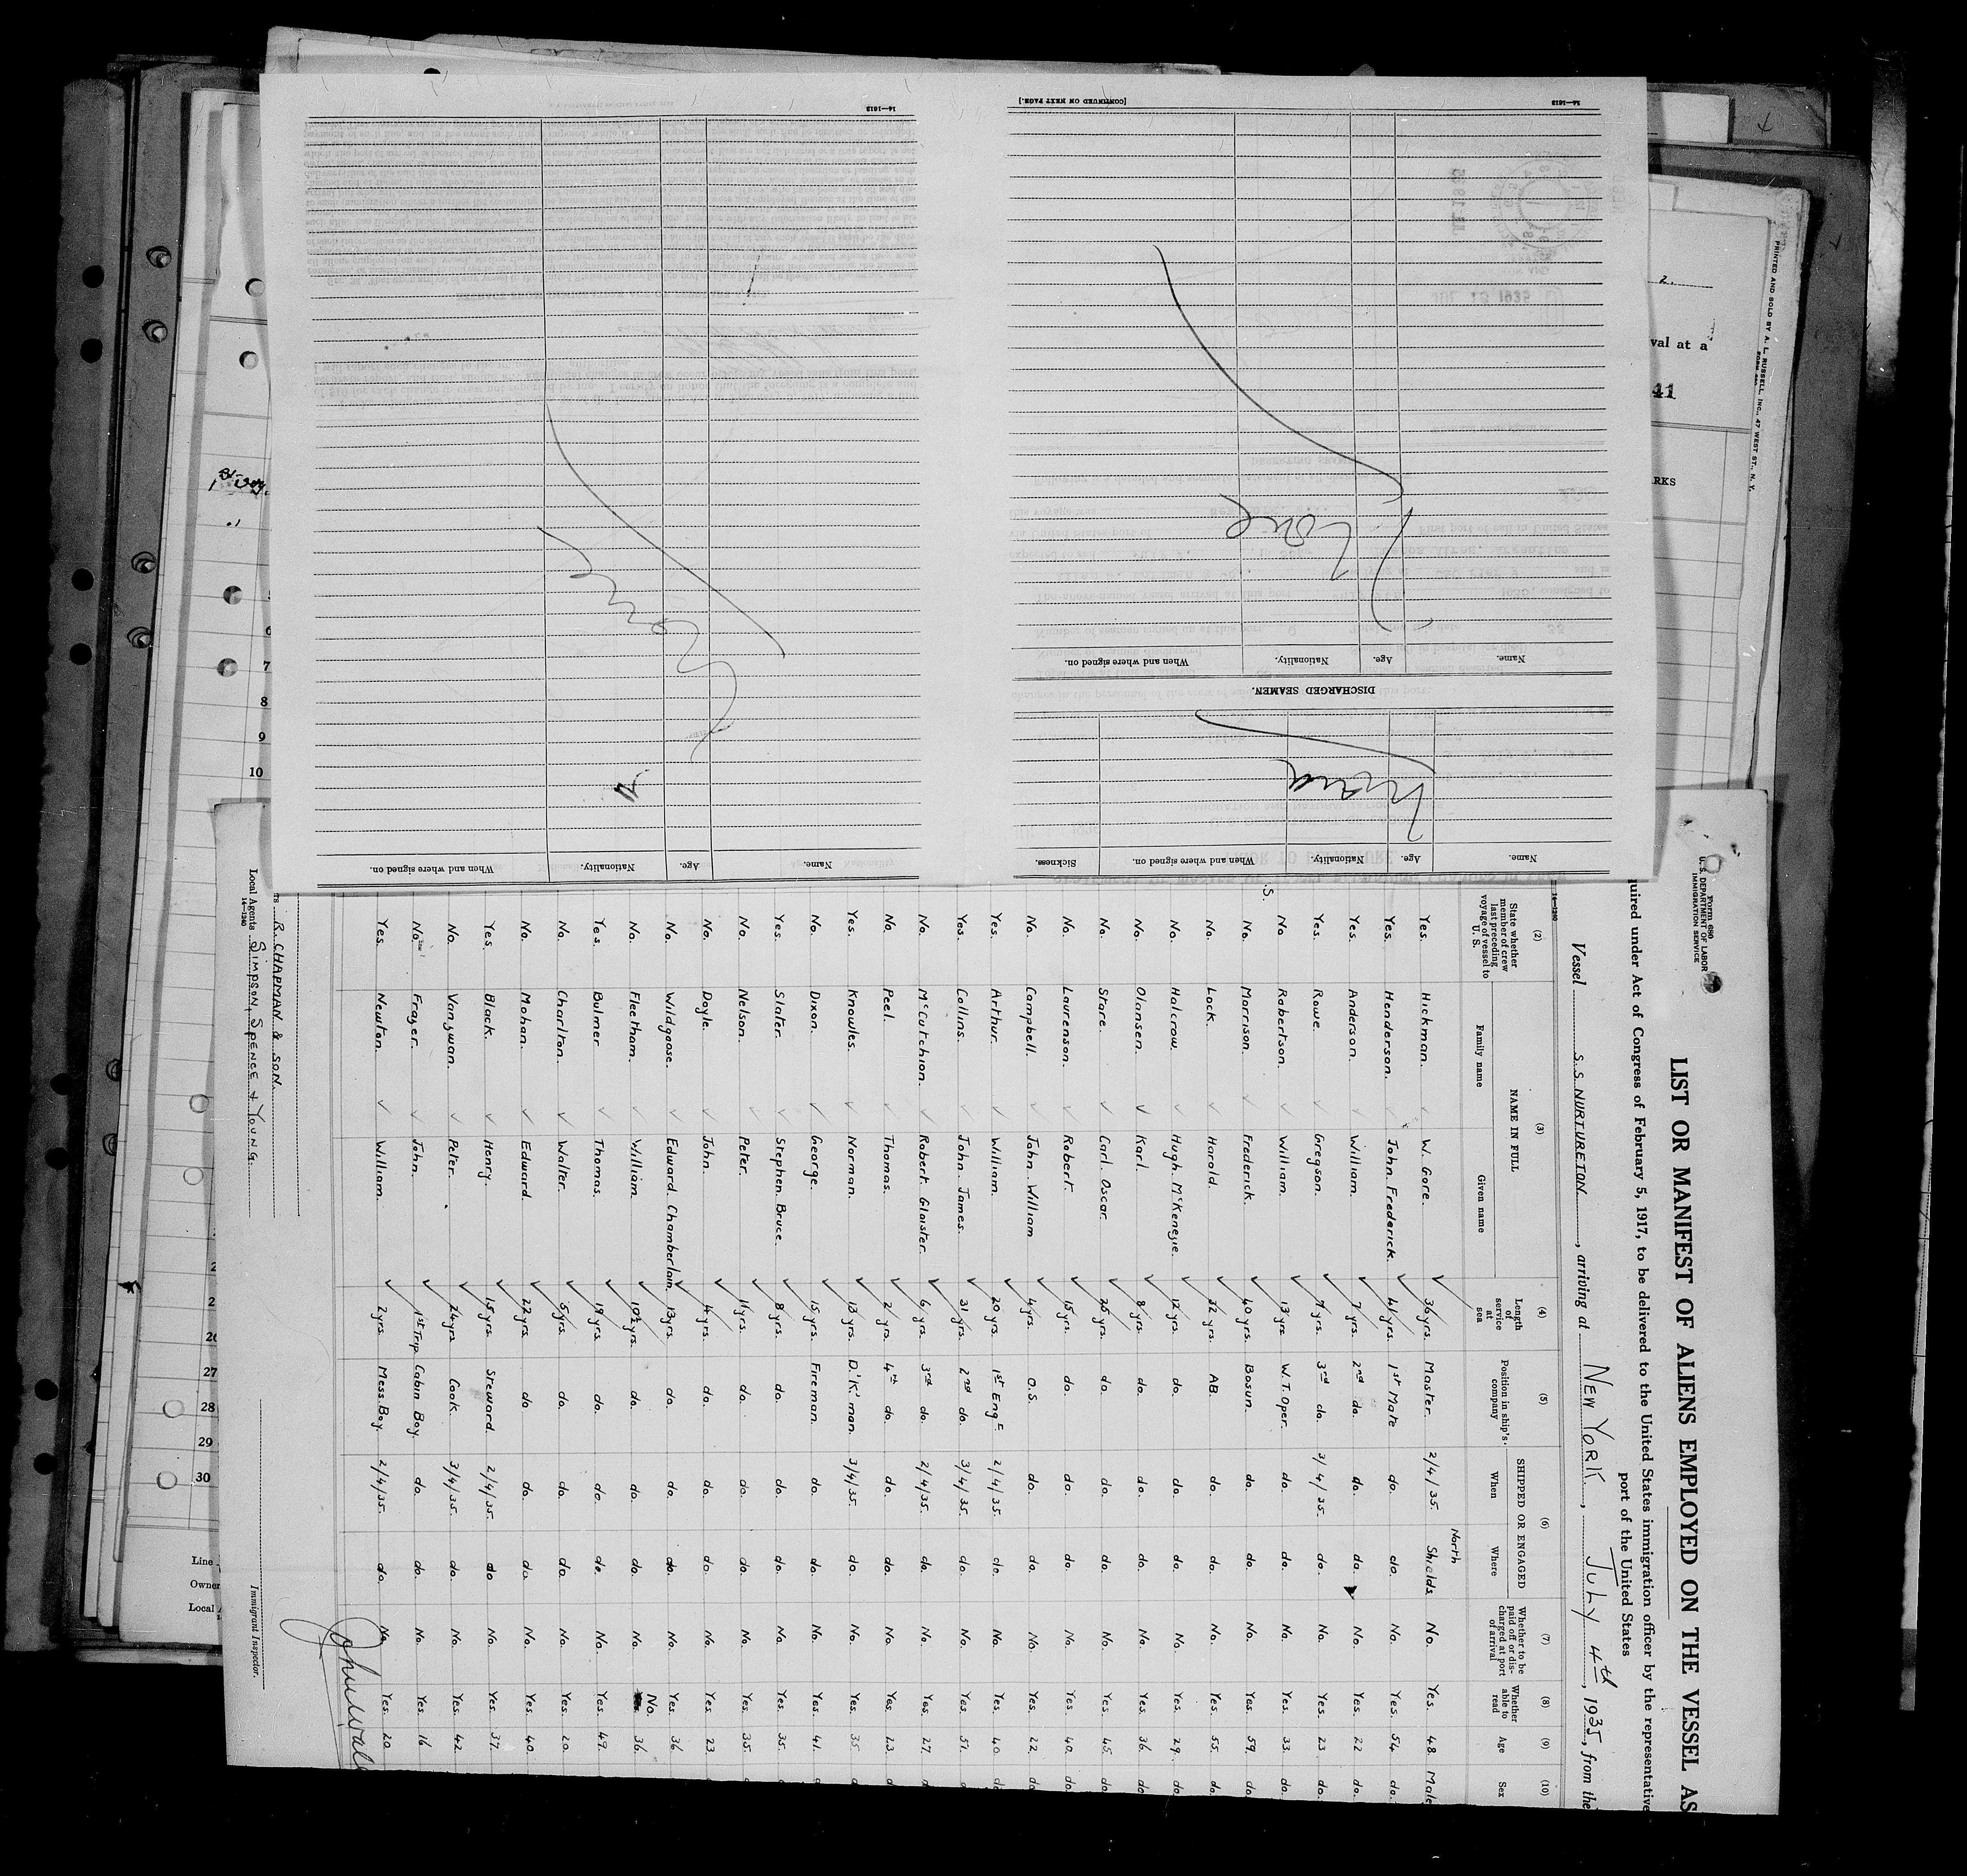 Form 680
U. S. DEPARTMENT OF LABOR
IMMIGRATION SERVICE
LIST OR MANIFEST OF ALIENS EMPLOYED ON THE VESSEL AS
quired under Act of Congress of February 5, 1917, to be delivered to the United States immigration officer by the representative
port of the United States
Vessel S.S. NURTURETON, arriving at NEW YORK, JULY 4th, 1935, from the
14—1240
(2) (3) (4) (5) (6) (7) (8) (9) (10)
State whether member of crew last preceding voyage of vessel to U. S. NAME IN FULL Family name Given name Length of service at sea Position in ship's company SHIPPED OR ENGAGED When Where Whether to be paid off or discharged at port of arrival Whether able to read Age Sex
Yes. Hickman. W. Gore. 36 yrs. Master. 2/4/35. North Shields No. Yes. 48. Male
Yes. Henderson. John Frederick. 41 yrs. 1st Mate do. do. No. Yes. 54 do.
Yes. Anderson. William. 7 yrs. 2nd do. do. do. No. Yes. 22 do.
Yes. Rowe. Gregson. 7 yrs. 3rd do. 3/4/35. do. No. Yes. 23 do.
No Robertson. William. 13 yrs W.T. Oper. do. do. No. Yes. 33. do.
No. Morrison. Frederick. 40 yrs. Bosun. do. do. No. Yes. 59. do.
No. Lock. Harold. 32 yrs. AB. do. do. No. Yes. 55. do.
No. Halcrow. Hugh McKenzie. 12 yrs. do. do. do. No. Yes. 29. do
No. Olansen. Karl. 8 yrs. do. do. do. No. Yes. 36 do
No. Stare. Carl Oscar. 25 yrs. do. do. do. No. Yes. 45. do
No. Laurenson. Robert. 15 yrs. do. do. do. No. Yes 40. do
No. Campbell. John William 4 yrs. O.S. do. do. No. Yes. 22. do
Yes. Arthur. William. 20 yrs. 1st Engr. 2/4/35. do. No. Yes. 40 do
Yes. Collins. John James. 31 yrs. 2nd do. 3/4/35. do. No. Yes. 51. d
No. McCutchion. Robert Glaister. 6 yrs. 3rd do. 2/4/35. do. No. Yes. 27. d
No. Peel. Thomas. 2 yrs. 4th do. do. do. No. Yes 23. d
Yes. Knowles. Norman. 13 yrs. D'K'man. 3/4/35. do. No. Yes. 35. d
No. Dixon. George. 15 yrs. Fireman. do. do. No. Yes. 41. d
Yes. Slater. Stephen Bruce. 8 yrs. do. do. do. No. Yes. 35. d
No. Nelson. Peter. 11 yrs. do. do. do. No. Yes. 35. d
No. Doyle. John. 4 yrs. do. do. do. No. Yes 23. d
No. Wildgoose. Edward Chamberlain. 13 yrs. do. do. do. No. Yes. 36 d
No. Fleetham. William 10½ yrs. do. do. do. No. No. 36. d
Yes. Bulmer Thomas. 19 yrs. do. do. do. No. Yes. 49. d
No. Charlton. Walter. 5 yrs. do. do. do. No. Yes. 20. d
No. Mohan. Edward 22 yrs. do. do. do. No. Yes. 40. d
Yes. Black. Henry. 15 yrs. Steward. 2/4/35. do No. Yes. 37. d
No. Vanzwan. Peter. 24 yrs. Cook. 3/4/35. do. No. Yes. 42.
No Frazer. John. 1st Trip. Cabin Boy. do. do. No. Yes. 16
Yes. Newton. William. 2 yrs. Mess. Boy. 2/4/35. do. No. Yes. 20.
R. CHAPMAN & SON.
Local Agents SIMPSON, SPENCE & YOUNG.
14—1240
Immigrant Inspector.
Name. Age. Nationality. When and where signed on. Sickness.
DISCHARGED SEAMEN.
Name. Age. Nationality. When and where signed on.
None
[CONTINUED ON NEXT PAGE.]
14—1613
Name. Age. Nationality. When and where signed on.
None
14—1613
JUL 15 1935
PRINTED AND SOLD BY A. L. RUSSELL, INC., 47 WEST ST., N. Y.
2.
val at a
41
RKS
6
7
8
9
10
27
28
29
30
Line
Owner
Local